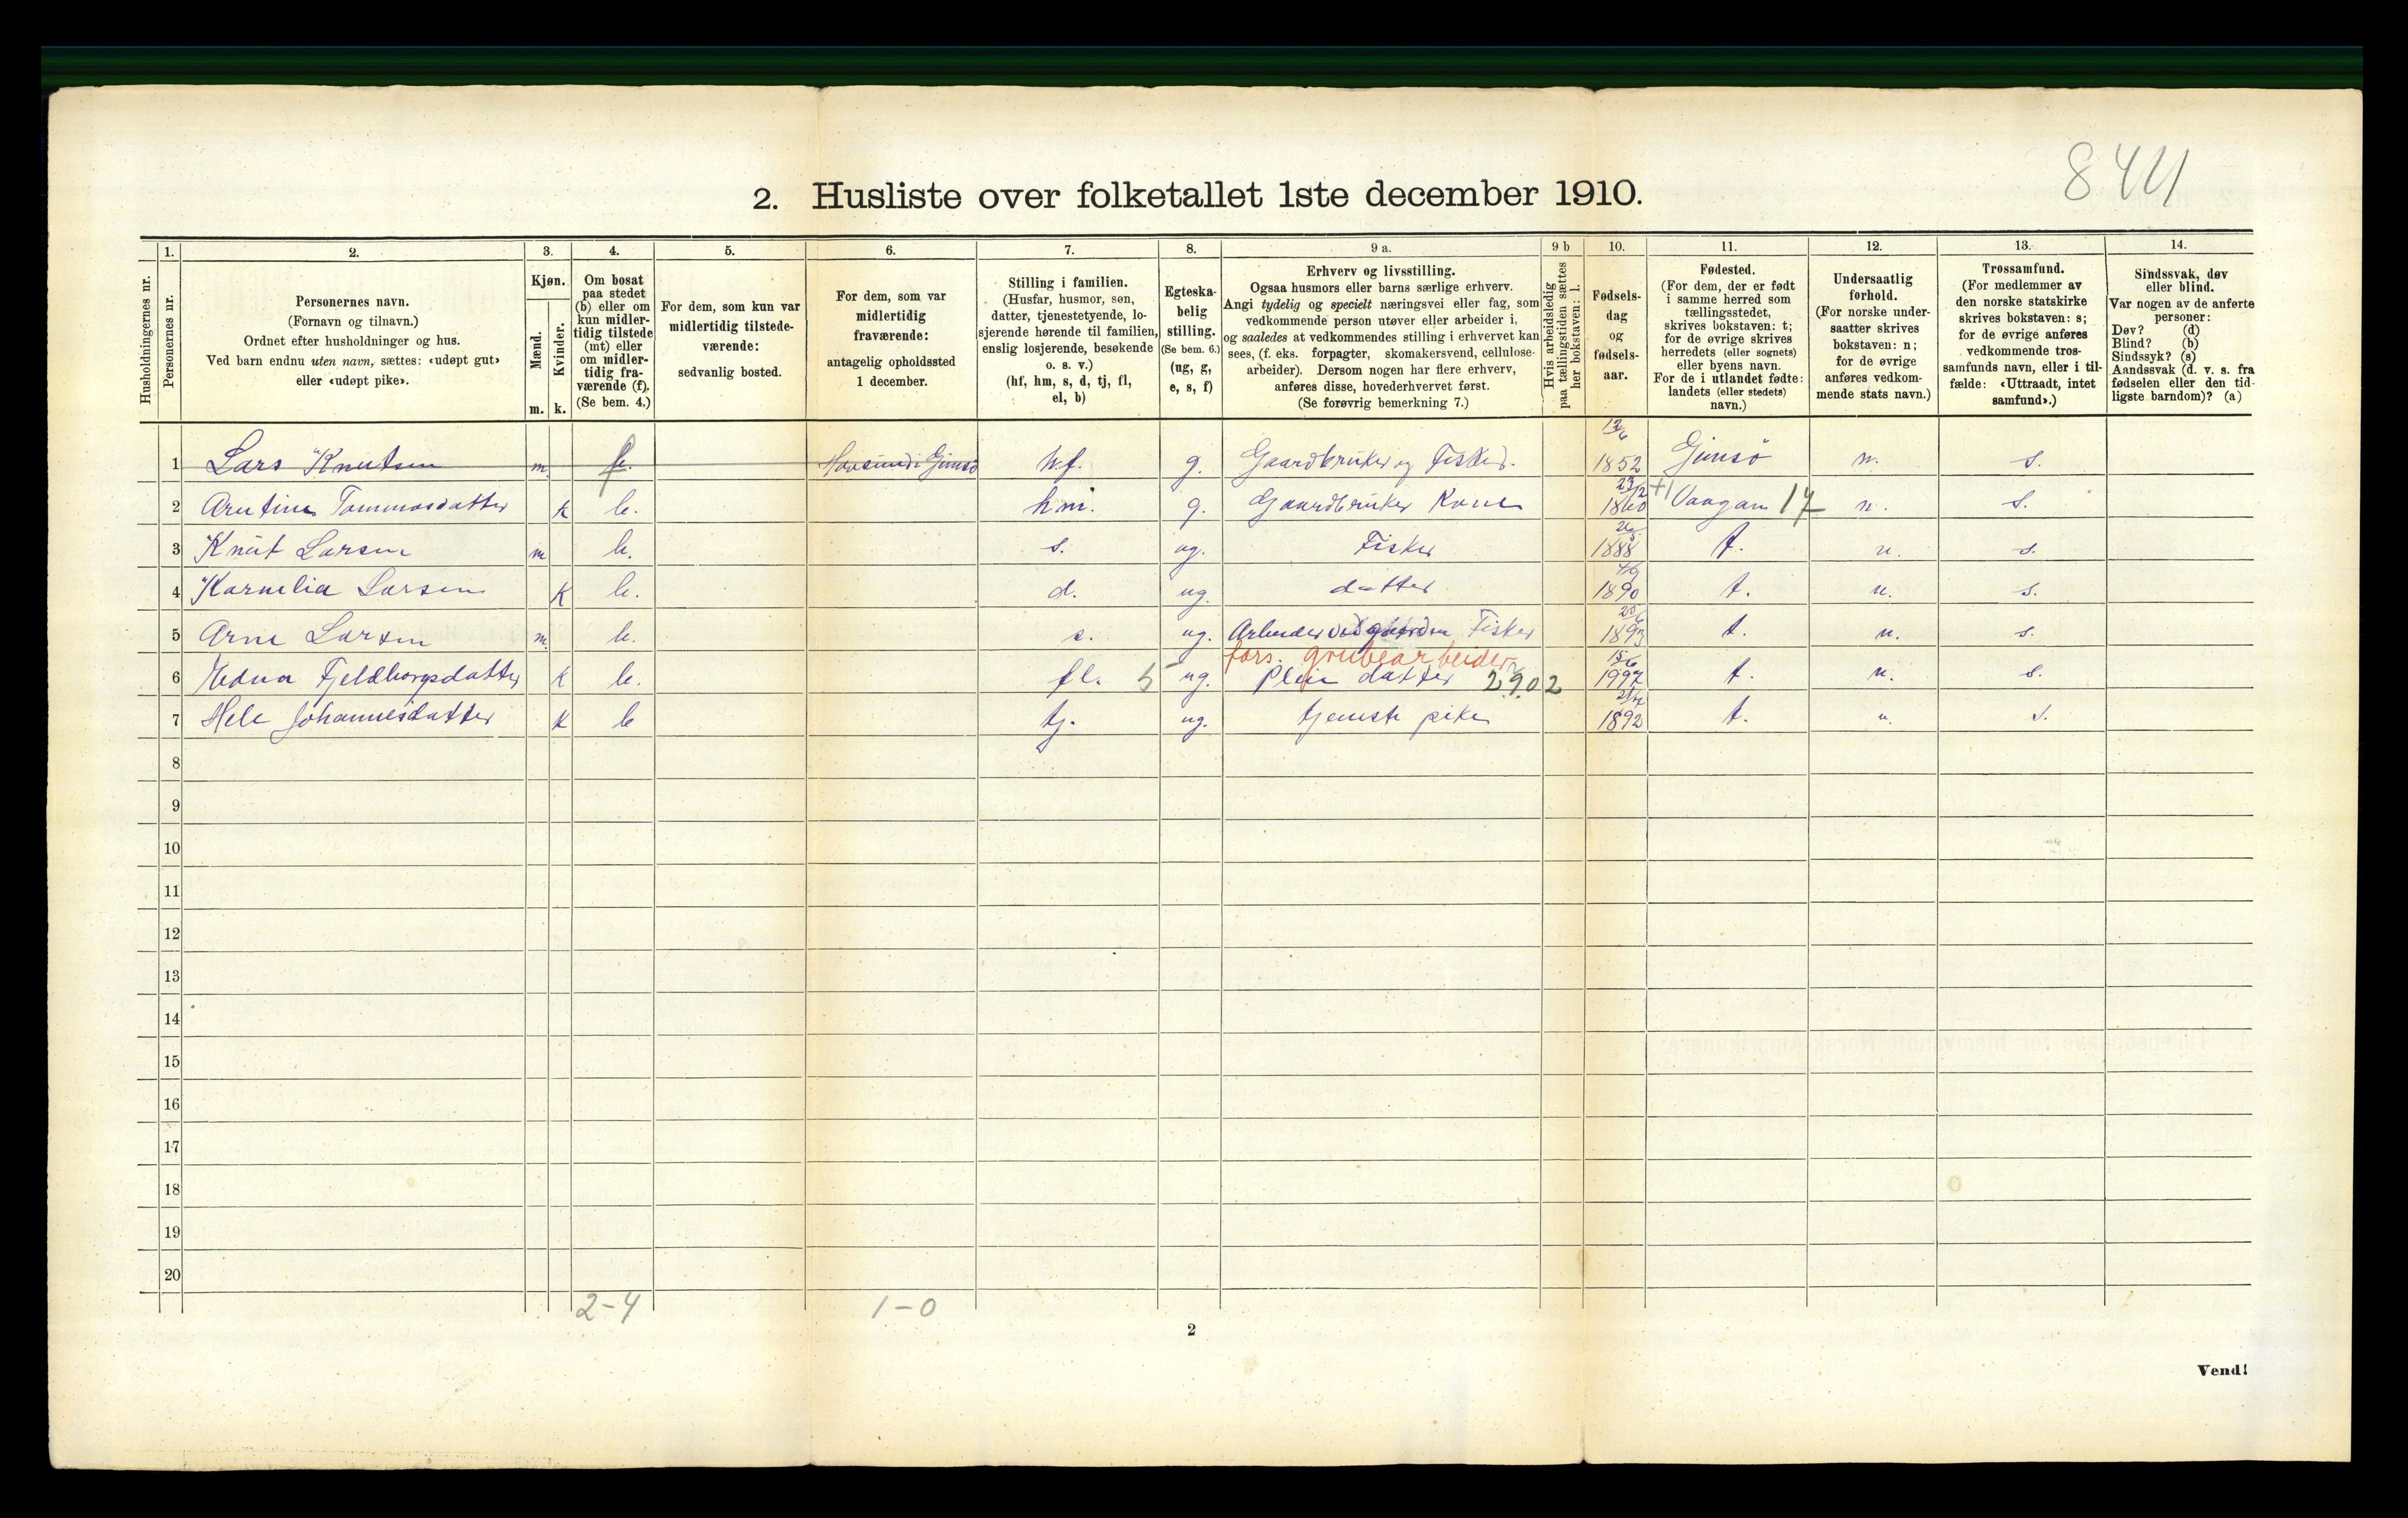 844
2. Husliste over folketallet 1ste december 1910.
Husholdningernes nr.
1.
Personernes nr.
2.
Personernes navn.
(Fornavn og tilnavn.)
Ordnet efter husholdninger og hus.
Ved barn endnu uten navn, sættes: «udøpt gut»
eller «udøpt pike».
3.
Kjøn.
Mænd.
Kvinder.
m. k.
4.
Om bosat
paa stedet
(b) eller om
kun midler-
tidig tilstede
(mt) eller
om midler-
tidig fra-
værende (f).
(Se bem. 4.)
5.
For dem, som kun var
midlertidig tilstede-
værende:
sedvanlig bosted.
6.
For dem, som var
midlertidig
fraværende:
antagelig opholdssted
1 december.
7.
Stilling i familien.
(Husfar, husmor, søn,
datter, tjenestetyende, lo-
sjerende hørende til familien,
enslig losjerende, besøkende
o. s. v.)
(hf, hm, s, d, tj, fl,
el, b)
8.
Egteska-
belig
stilling.
(Se bem. 6.)
(ug, g,
e, s, f)
9 a.
Erhverv og livsstilling.
Ogsaa husmors eller barns særlige erhverv.
Angi tydelig og specielt næringsvei eller fag, som
vedkommende person utøver eller arbeider i,
og saaledes at vedkommendes stilling i erhvervet kan
sees, (f. eks. forpagter, skomakersvend, cellulose-
arbeider). Dersom nogen har flere erhverv,
anføres disse, hovederhvervet først.
(Se forøvrig bemerkning 7.)
9 b
Hvis arbeidsledig
paa tællingstiden sættes
her bokstaven: l.
10.
Fødsels-
dag
og
fødsels-
aar.
11.
Fødested.
(For dem, der er født
i samme herred som
tællingsstedet,
skrives bokstaven: t;
for de øvrige skrives
herredets (eller sognets)
eller byens navn.
For de i utlandet fødte:
landets (eller stedets)
navn.)
12.
Undersaatlig
forhold.
(For norske under-
saatter skrives
bokstaven: n;
for de øvrige
anføres vedkom-
mende stats navn.)
13.
Trossamfund.
(For medlemmer av
den norske statskirke
skrives bokstaven: s;
for de øvrige anføres
vedkommende tros-
samfunds navn, eller i til-
fælde: «Uttraadt, intet
samfund».)
14.
Sindssvak, døv
eller blind.
Var nogen av de anførte
personer:
Døv? (d)
Blind? (b)
Sindssyk? (s)
Aandssvak (d. v. s. fra
fødselen eller den tid-
ligste barndom)? (a)
1 Lars Knutsen m f. Hovsund i Gimsö h.f. g. Gaardbruker og Fisker. 12/6 1852 Gimsö n. s.
2 Arntine Tommasdatter k b. hm. g. Gaardbruker Kone 1860 +1 Vaagan 17 n. s.
3 Knut Larsen m b. s. ug. Fisker 1888 t. n. s.
4 Kornelia Larsen K b. d. ug. datter 1890 t. n. s.
5 Arne Larsen m. b. s. ug. Arbeider ved gaarden Fisker 1893 t. n. s.
fors. grubearbeider
6 Fjeldborgsdatter k b. fl. 5 ug. Pleie datter 2902 1997 t. n. s.
7 Hele Johannesdatter K b tj. ug. tjeneste pike 1892 t. n. s.
8
9
10
11
12
13
14
15
16
17
18
19
20
2-4 1-0
2
Vend!